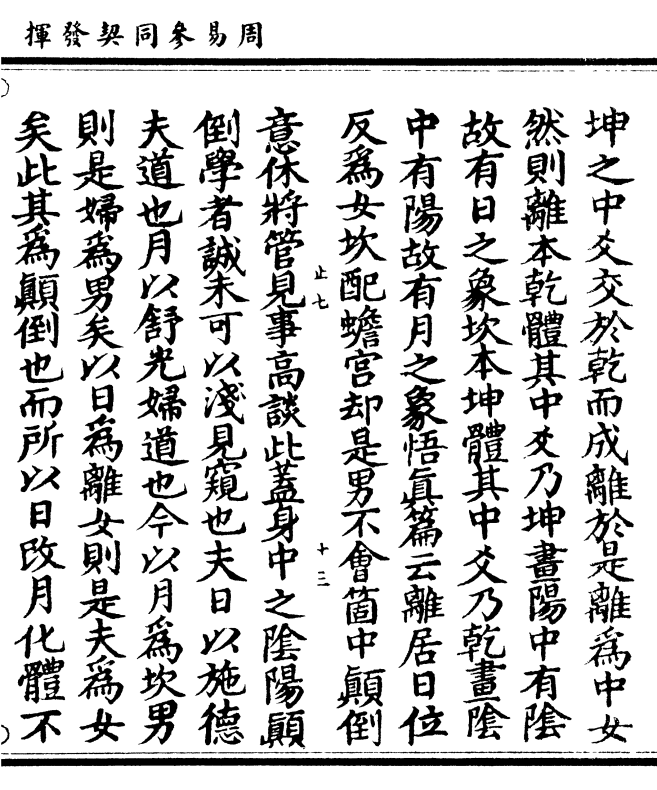 周易參同契發揮
坤之中爻交於乾而成離於是離爲中女
然則離本乾體其中爻乃坤畫陽中有陰
故有日之象坎本坤體其中爻乃乾畫陰
中有陽故有月之象悟眞篇云離居日位
反爲女坎配蟾宫却是男不會箇中顚倒
止七
十三
意休將管見事高談此蓋身中之陰陽顚
倒學者誠未可以淺見窺也夫日以施德
夫道也月以舒光婦道也今以月爲坎男
則是婦爲男矣以日爲離女則是夫爲女
矣此其爲顚倒也而所以日改月化體不